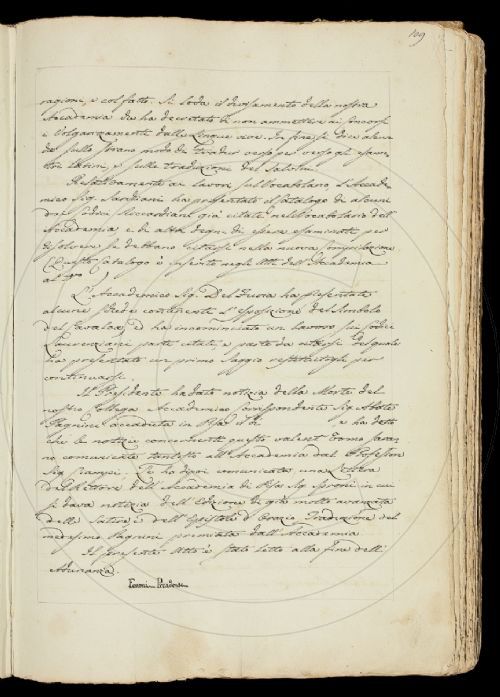 109
ragione, e col fatto. Si loda il divisamento della nostra
Accademia che ha decretato di non ammettere ai concorsi
i Volgarizzamenti dalle Lingue vive. In fine si dice alcuna
cosa sullo strano modo di tradur verso per verso gli esame-
tri latini, e sulla traduzione del Salvini.
Relativamente ai lavori sul Vocabolario, l'Accade-
mico Sig. Zannoni ha presentato il Catalogo di alcuni
Codici Riccardiani già citati nel Vocabolario dell'
Accademia e di altri degni di essere esaminati per
risolvere se debbano citarsi nella nuova compilazione
(Questo Catalogo è inserito negli Atti dell'Accademia
al
L'Accademico Sig. Del Furia ha presentate
alcune schede contenenti l'esposizione del Simbolo
del Cavalca, ed ha incominciato un lavoro sui codici
Laurenziani parte citati e parte da citarsi del quale
ha presentato un primo Saggio restituitogli per
continuarsi.
Il Presidente ha dato notizia della Morte del
nostro Collega Accademico Corrispondente Sig. Abate
Pagnini accaduta in Pisa il dì e ha detto
che le notizie concernenti questo valent'Uomo saran-
no comunicate tantosto all'Accademia dal Professore
Sig. Ciampi. Ci ha dipoi comunicata una Lettera
del Rettore dell'Accademia di Pisa Sig. Sproni in cui
si dava notizia dell'Edizione di già molto avanzata
delle Satire e dell'Epistole d'Orazio Traduzione del
medesimo Pagnini premiata dall'Accademia
Il presente Atto è stato letto alla fine dell'
Adunanza.